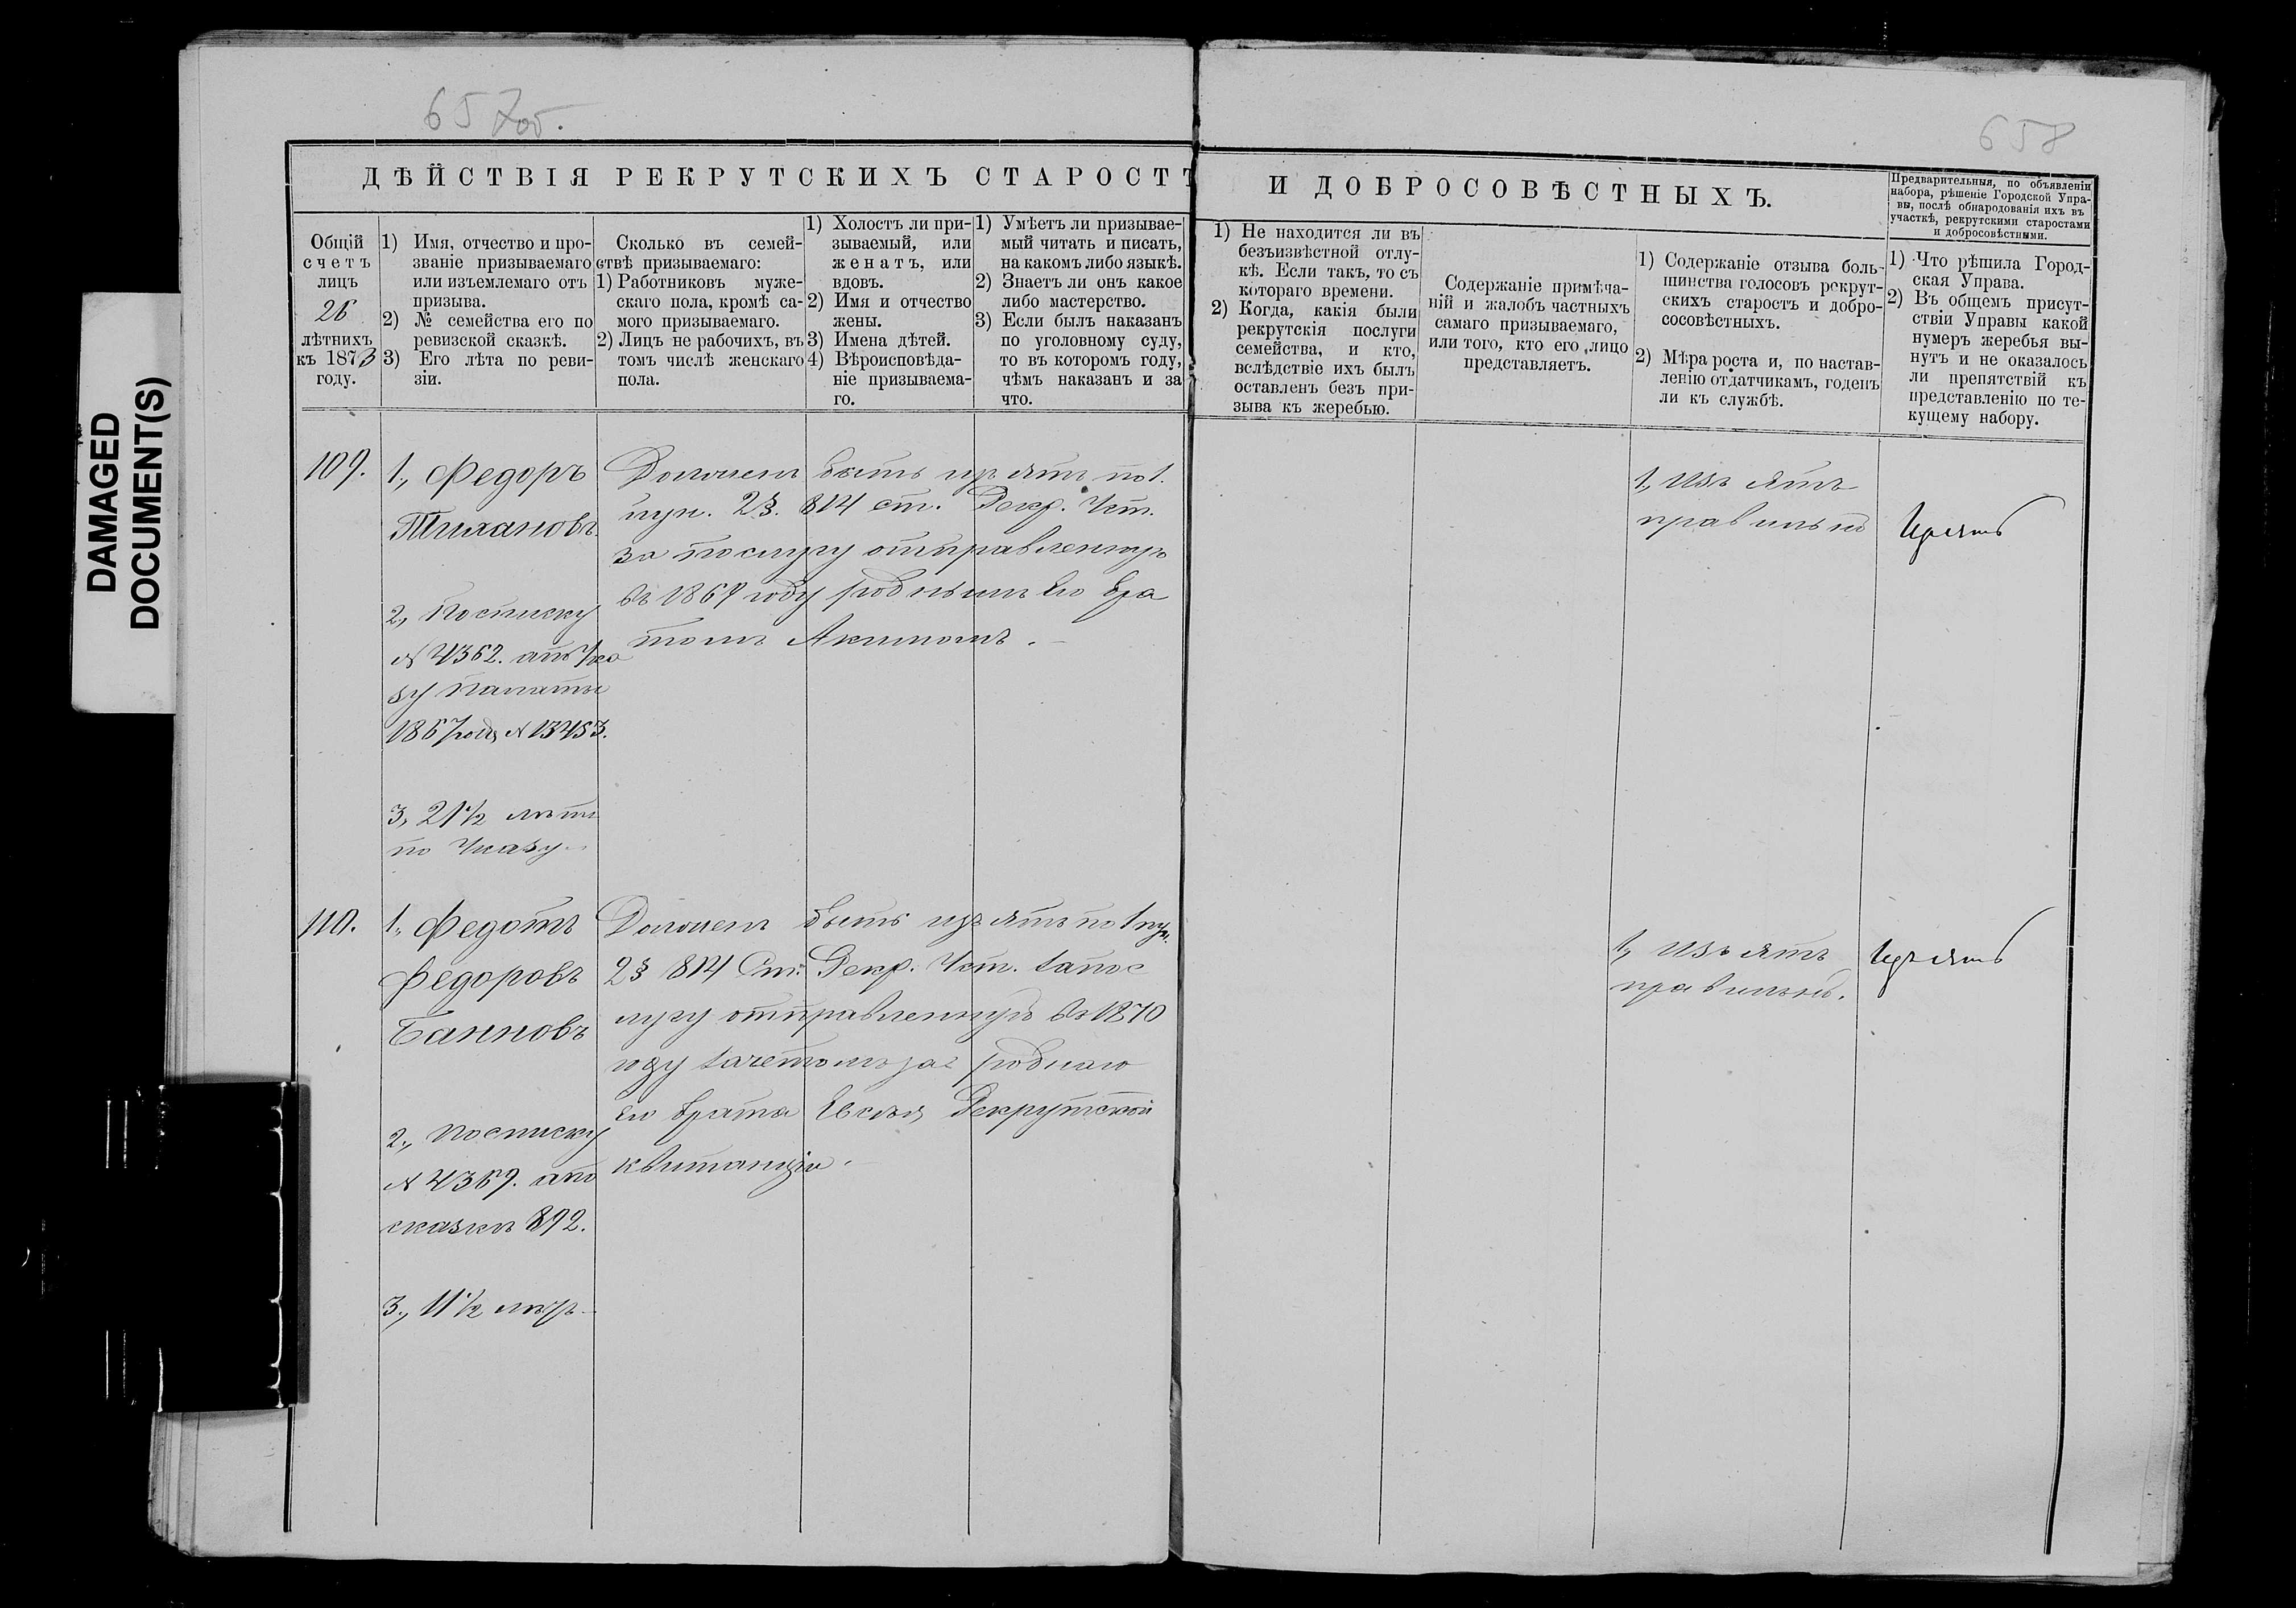 DAMAGED
DOCUMENT(S)
657об.
658
ДѢЙСТВІЯ РЕКРУТСКИХЪ СТАРОСТЪ
И ДОБРОСОВѢСТНЫХЪ.
Общій
счетъ
лицъ
26
лѣтнихъ
къ 1873
году.
1) Имя, отчество и про-
званіе призываемаго
или изъемлемаго отъ
призыва.
2) № семейства его по
ревизской сказкѣ.
3) Его лѣта по реви-
зіи.
Сколько въ семей-
ствѣ призываемаго:
1) Работниковъ муже-
скаго пола, кромѣ са-
мого призываемаго.
2) Лицъ не рабочихъ, въ
томъ числѣ женскаго
пола.
1) Холостъ ли при-
зываемый, или
женатъ, или
вдовъ.
2) Имя и отчество
жены.
3) Имена дѣтей.
4) Вѣроисповѣда-
ніе призываема-
го.
1) Умѣетъ ли призывае-
мый читать и писать,
на какомъ либо языкѣ.
2) Знаетъ ли онъ какое
либо мастерство.
3) Если былъ наказанъ
по уголовному суду,
то въ которомъ году,
чѣмъ наказанъ и за
что.
1) Не находится ли въ
безъизвѣстной отлу-
кѣ. Если такъ, то съ
котораго времени.
2) Когда, какія были
рекрутскія послуги
семейства, и кто,
вслѣдствіе ихъ былъ
оставленъ безъ при-
зыва къ жеребью.
Содержаніе примѣча-
ній и жалобъ частныхъ
самаго призываемаго,
или того, кто его лицо
представляетъ.
1) Содержаніе отзыва боль-
шинства голосовъ рекрут-
скихъ старостъ и добро-
сосовѣстныхъ.
2) Мѣра роста и, по настав-
ленію отдатчикамъ, годенъ
ли къ службѣ.
Предварительныя, по объявленіи
набора, рѣшеніе Городской Упра-
вы, послѣ обнародованія ихъ въ
участкѣ, рекрутскими старостами
и добросовѣстными.
1) Что рѣшила Город-
ская Управа.
2) Въ общемъ присут-
ствіи Управы какой
нумеръ жеребья вы-
нутъ и не оказалось
ли препятствій къ
представленію по те-
кущему набору.
109.
1., Федоръ
Тихановъ.
2., По списку
№ 4362. а по Ука
зу Палаты
1867 года № 13453.
3, 21½ лѣтъ
по Указу
Долженъ быть изъятъ по 1.
пун. 2§. 814 ст. Рекр. Уст.
за послугу отправленную
въ 186 году роднымъ его бра
томъ Акимомъ.
1., Изъятъ
правильно
Изъятъ
110.
1., Федотъ
Федоровъ
Банновъ
2., По списку
№ 4369. а по
сказкѣ 892.
3., 11½ лѣтъ
Долженъ быть изъятъ по 1 пун.
2§ 814 Ст. Рекр. Уст. за пос
лугу отправленную въ 1870
году зачетомъ за роднаго
его брата Евсѣя Рекрутской
квитанціи.
1, Изъятъ
правильно.
Изъятъ